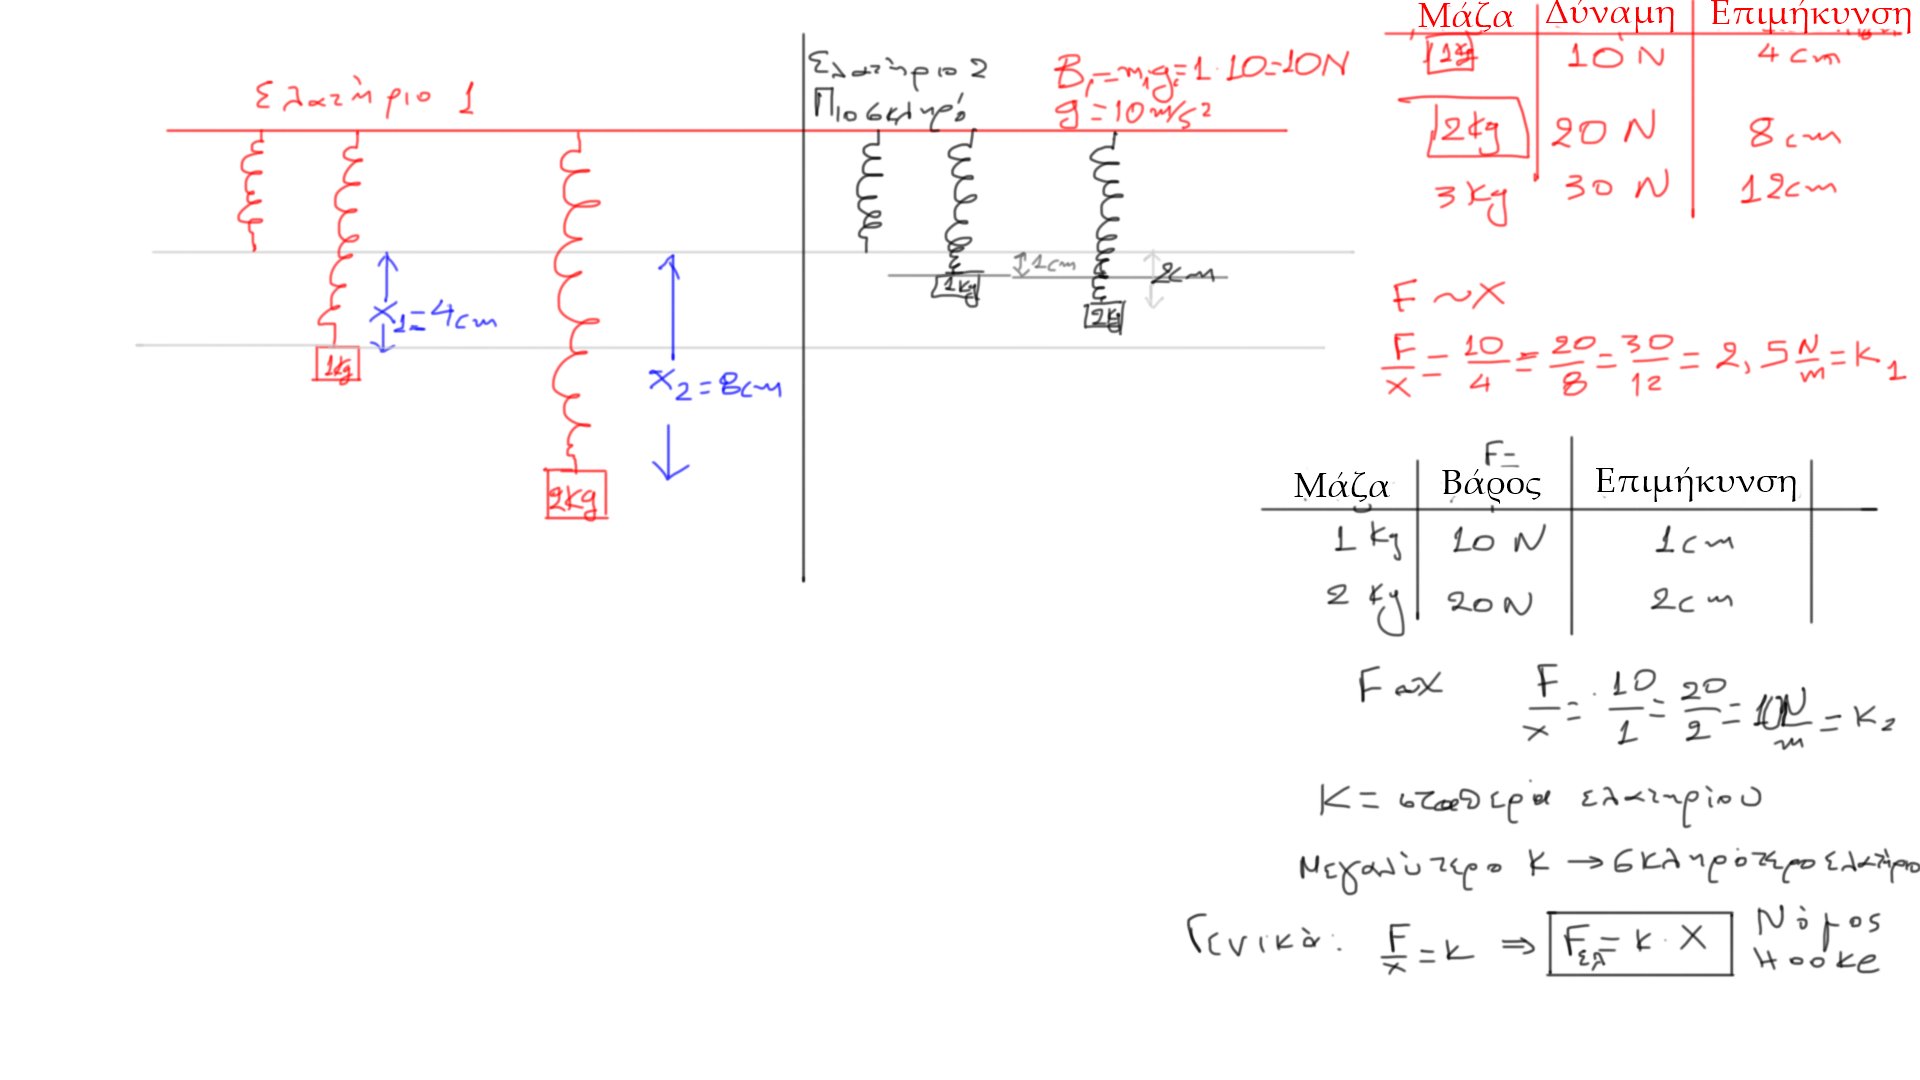 Ελατήριο 1
x₁=4cm
1kg
x₂=8cm
2kg
Ελατήριο 2
Πιο σκληρό
B₁=m₁g=1·10=10N
g=10m/s²
1cm
1kg
2cm
2kg
Μάζα Δύναμη Επιμήκυνση
1kg 10 N 4cm
2kg 20 N 8cm
3kg 30 N 12cm
F~x
F/x = 10/4 = 20/8 = 30/12 = 2,5 N/m = K₁
F=
Μάζα Βάρος Επιμήκυνση
1 kg 10 N 1cm
2 kg 20 N 2cm
F~x F/x = 10/1 = 20/2 = 10 N/m = K₂
K = σταθερά ελατηρίου
Μεγαλύτερο K → σκληρότερο ελατήριο
Γενικά: F/x = k ⇒ Fελ = k·x Νόμος
Hooke